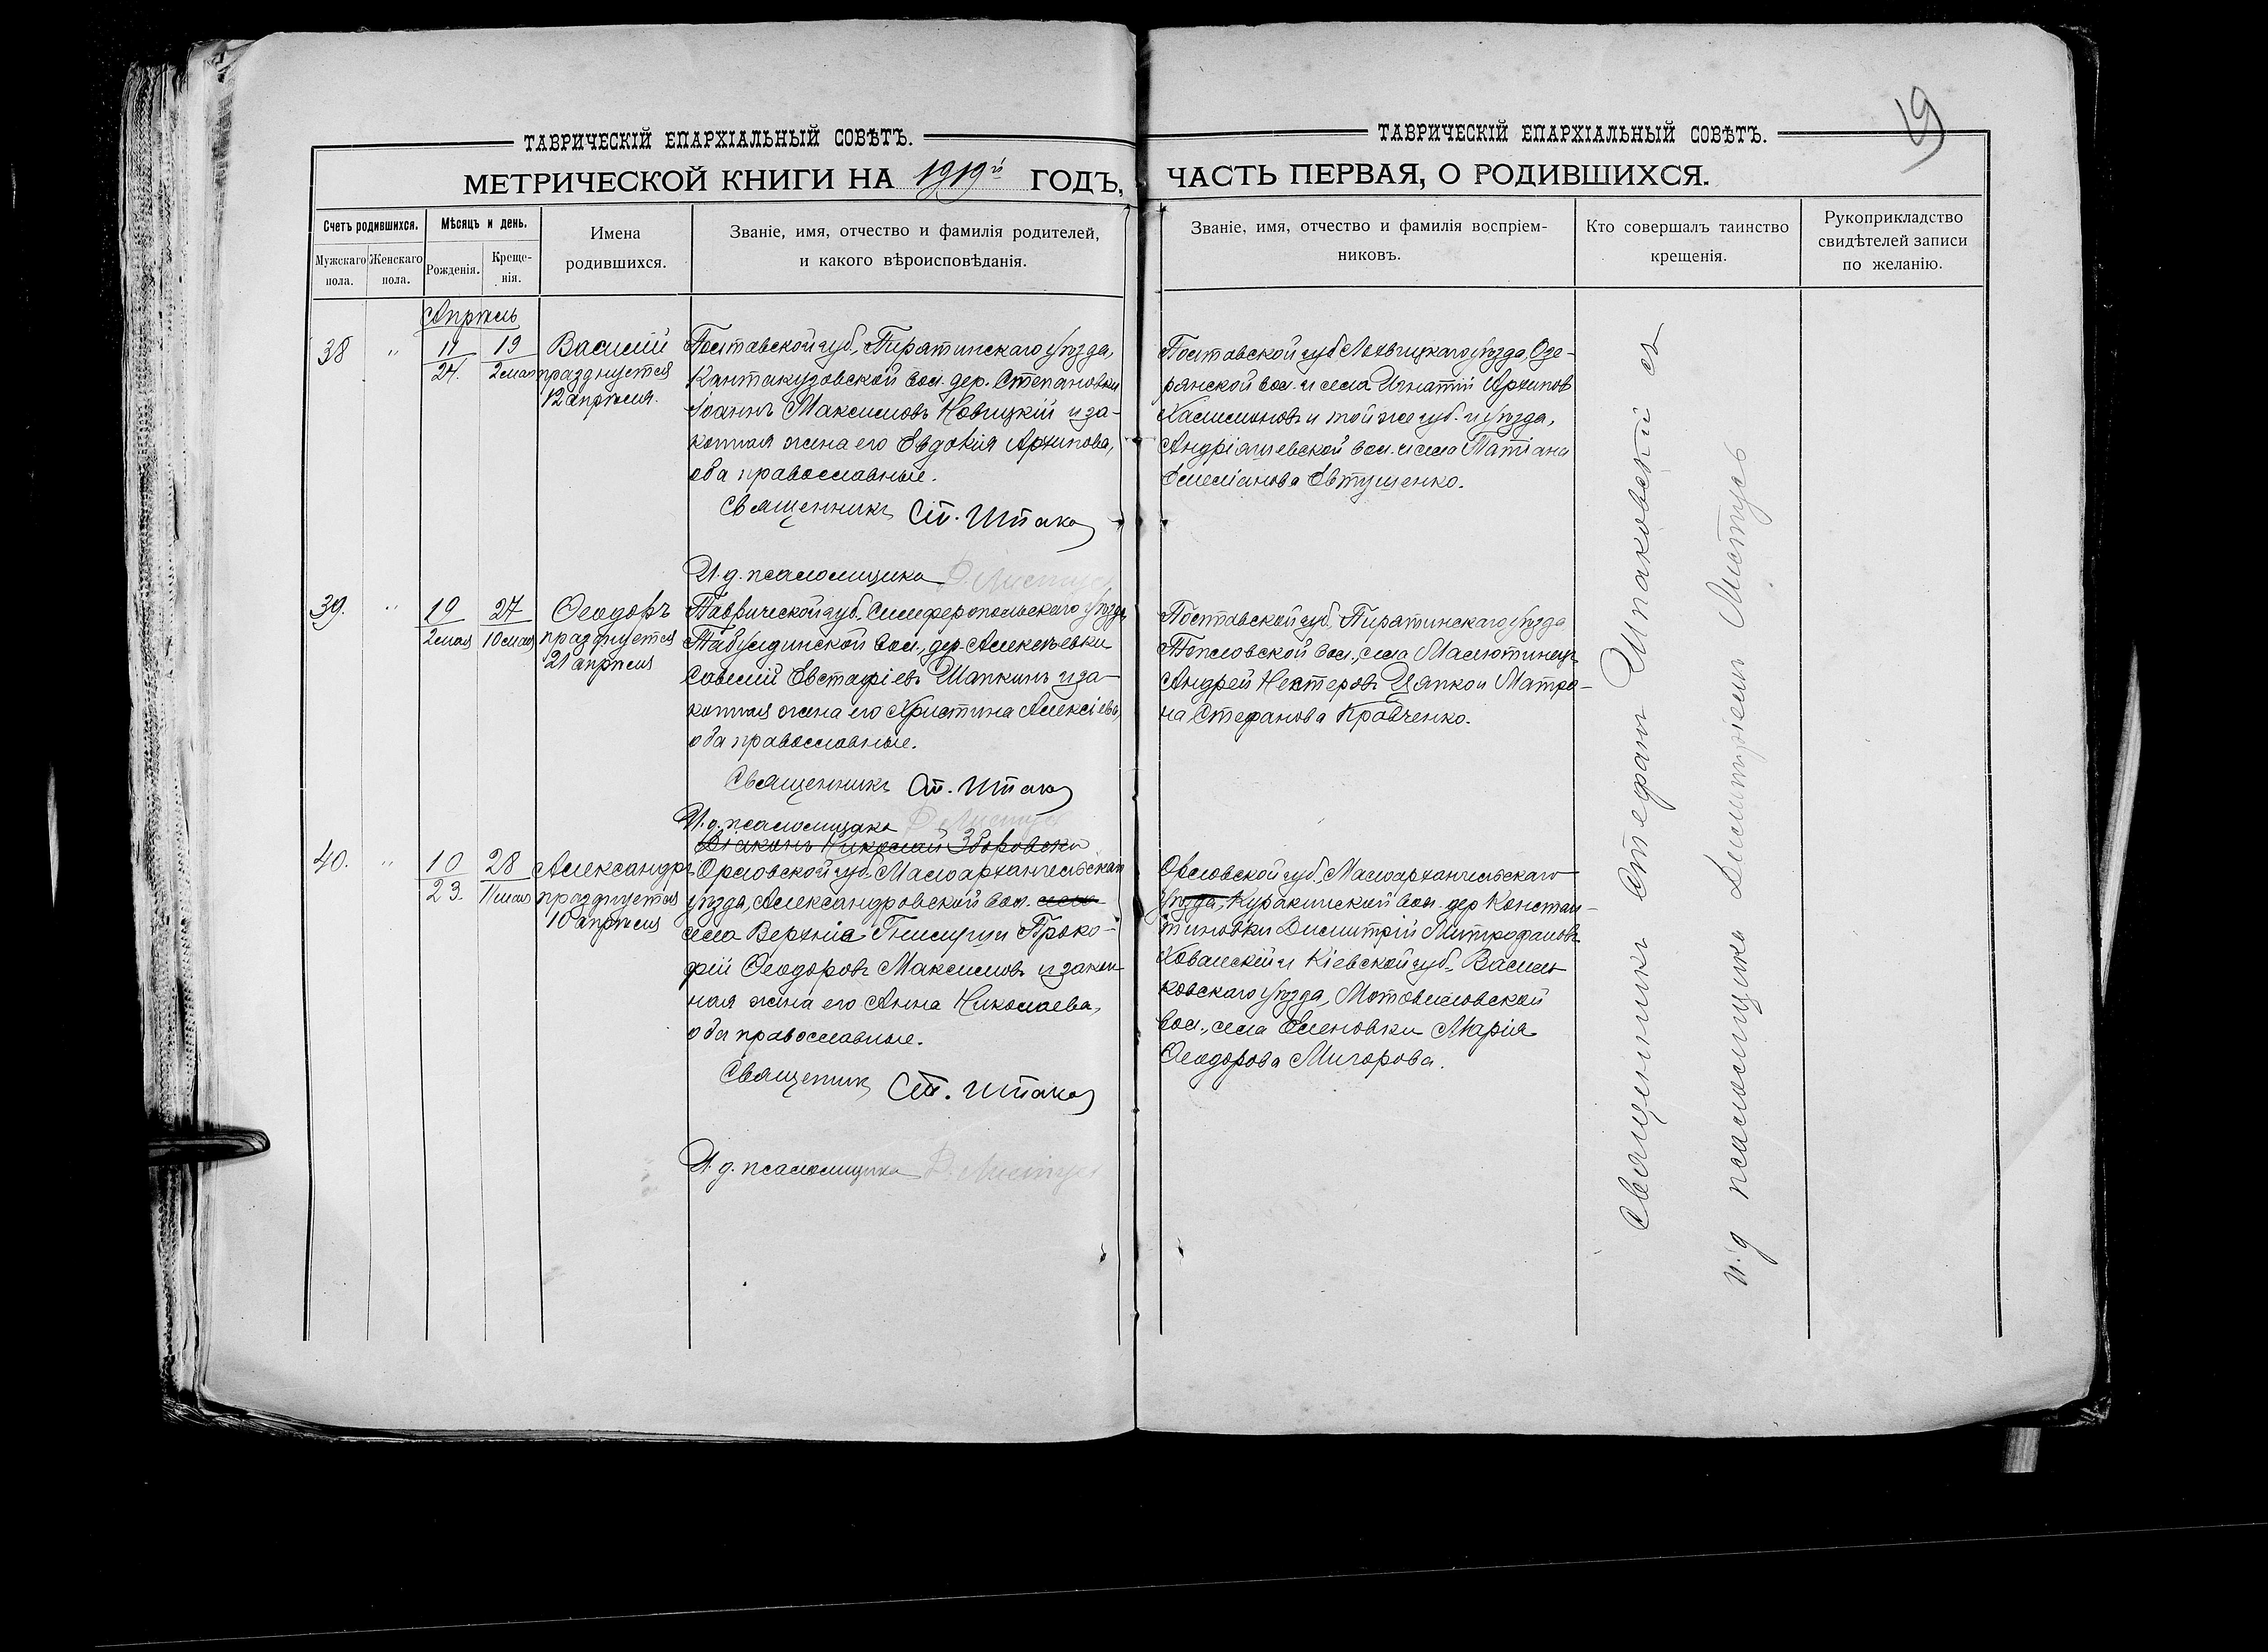 19
ТАВРИЧЕСКІЙ ЕПАРХІАЛЬНЫЙ СОВѢТЪ.
МЕТРИЧЕСКОЙ КНИГИ НА 1919й ГОДЪ,
Счетъ родившихся.
Мужскаго пола.
Женскаго пола.
Мѣсяцъ и день.
Рожденія.
Креще-
нія.
Имена
родившихся.
Званіе, имя, отчество и фамилія родителей,
и какого вѣроисповѣданія.
Апрѣль
38 " 11 19 Василій
24. 2 мая празднуется
12 апрѣля.
Полтавской губ., Пирятинскаго уѣзда,
Кантакузовской вол. дер. Степановки
Іоаннъ Максимовъ Новицкій и за-
конная жена его Евдокія Архипова,
оба православные.
Священникъ Ст. Шпако
И. д. псаломщика Д. Листусъ
39. " 19 27 Ѳеодоръ
2 мая 10 мая празднуется
21 апрѣля
Таврической губ., Симферопольскаго уѣзда
Табулдинской вол., дер. Алексѣевки
Савелій Евстафіевъ Шапкинъ и за-
конная жена его Христина Алексіева,
оба православные.
Священникъ Ст. Шпако
И. д. псаломщика Д. Листусъ
Діаконъ Николай Зборовски
40. " 10 28 Александръ
23. 11 мая празднуется
10 апрѣля
Орловской губ., Малоархангельскаго
уѣзда, Александровской вол. села
села Верхніе Гнилуши Проко-
фій Ѳеодоровъ Максимовъ и закон-
ная жена его Анна Николаева,
оба православные.
Священникъ Ст. Шпако
И. д. псаломщика Д. Листусъ
ТАВРИЧЕСКІЙ ЕПАРХІАЛЬНЫЙ СОВѢТЪ.
ЧАСТЬ ПЕРВАЯ, О РОДИВШИХСЯ.
Званіе, имя, отчество и фамилія воспріем-
никовъ.
Кто совершалъ таинство
крещенія.
Рукоприкладство
свидѣтелей записи
по желанію.
Полтавской губ. Лохвицкаго уѣзда, Озе-
рянской вол. и села Игнатій Архипов
и той же губ. и уѣзда,
Андріяшевской вол. и села Татіана
Емеліанова Евтушенко.
Полтавской губ., Пирятинскаго уѣзда
Тепловской вол., села Малютинецъ
Андрей Нестеровъ Цяпко и Матро-
на Стефанова Кравченко.
Орловской губ., Малоархангельскаго
уѣзда, Куракинской вол. дер. Констан-
тиновки Димитрій Митрофановъ
Ковалскій и Кіевской губ., Василь-
ковскаго уѣзда, Мотовиловской
вол., села Еленовки Марія
Ѳеодорова Мигорова.
Священникъ Стефанъ Шпаковскій съ
и. д псаломщика Димитріемъ Листусъ